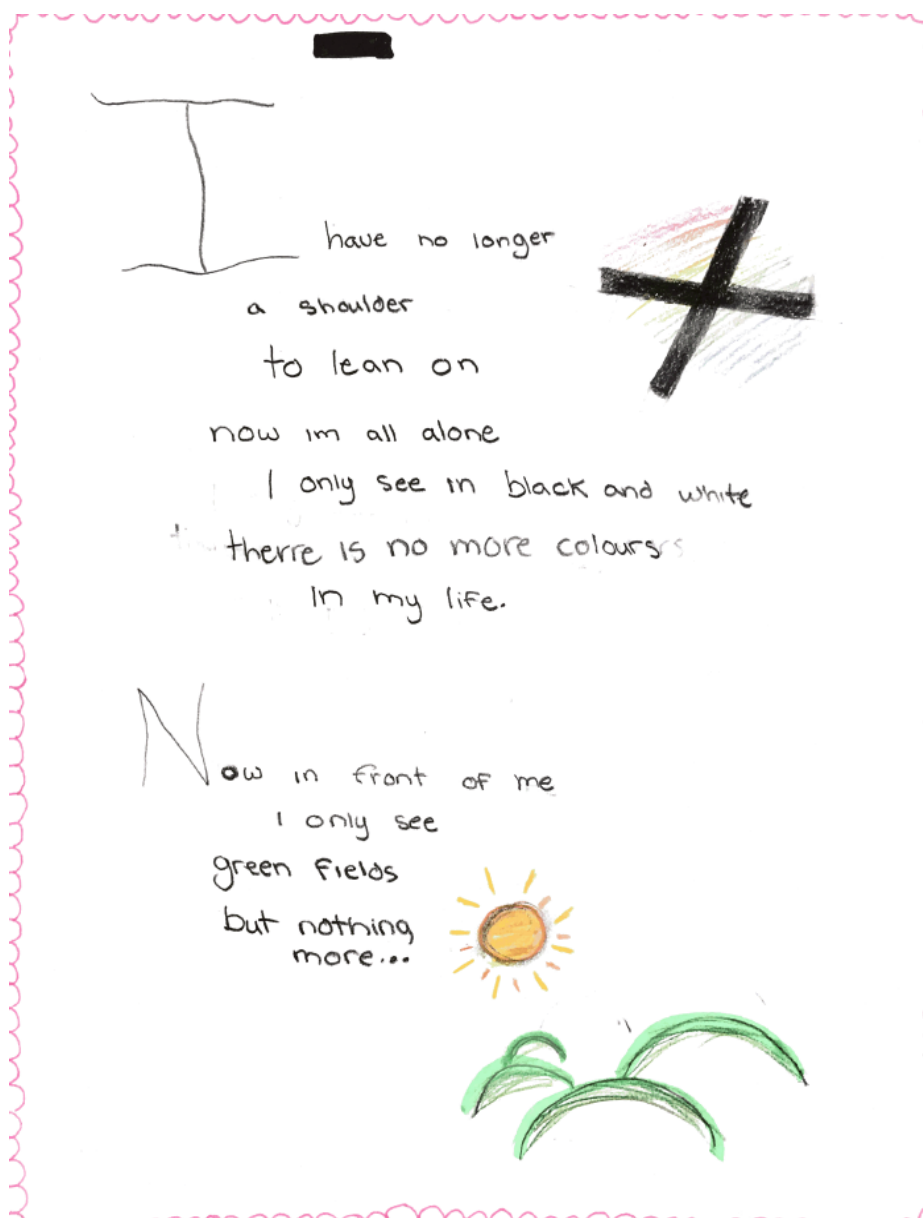 I have no longer
a shoulder
to lean on
now im all alone
I only see in black and white
therre is no more colours
in my life.
Now in front of me
I only see
green fields
but nothing
more...